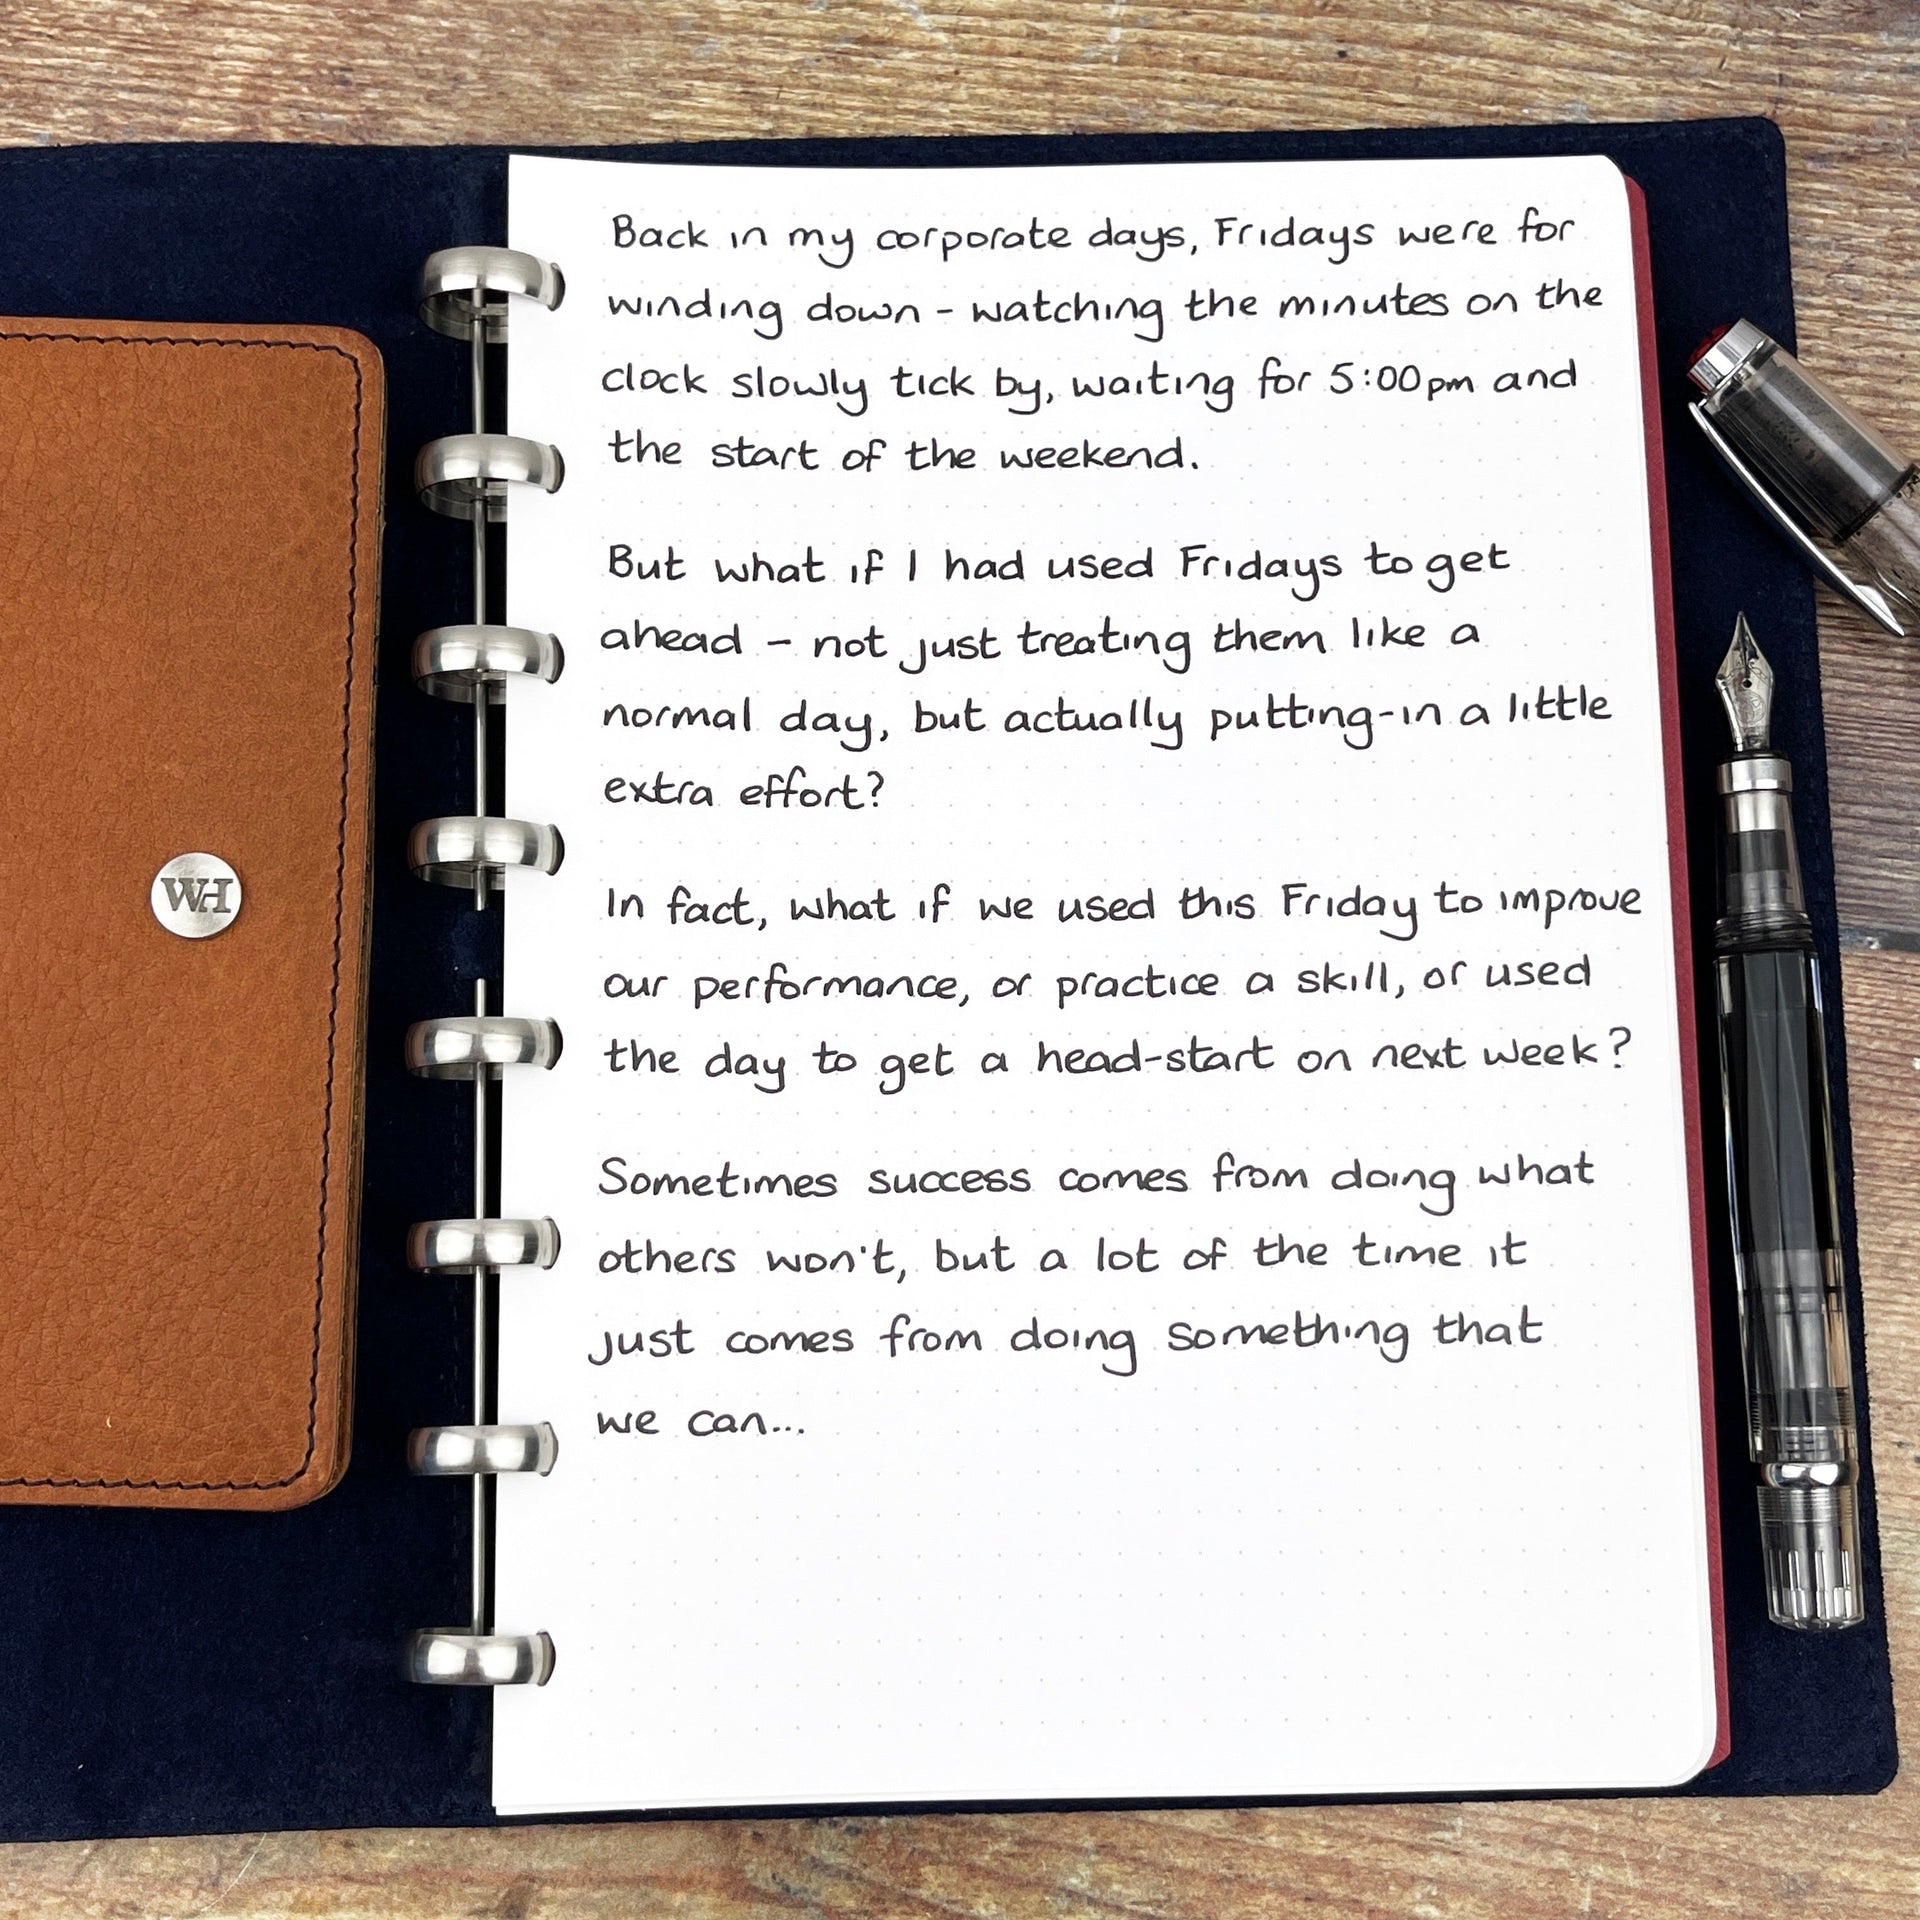 WH
Back in my corporate days, Fridays were for
winding down - watching the minutes on the
clock slowly tick by, waiting for 5:00pm and
the start of the weekend.
But what if I had used Fridays to get
ahead - not just treating them like a
normal day, but actually putting-in a little
extra effort?
In fact, what if we used this Friday to improve
our performance, or practice a skill, or used
the day to get a head-start on next week?
Sometimes success comes from doing what
others won't, but a lot of the time it
just comes from doing something that
we can...